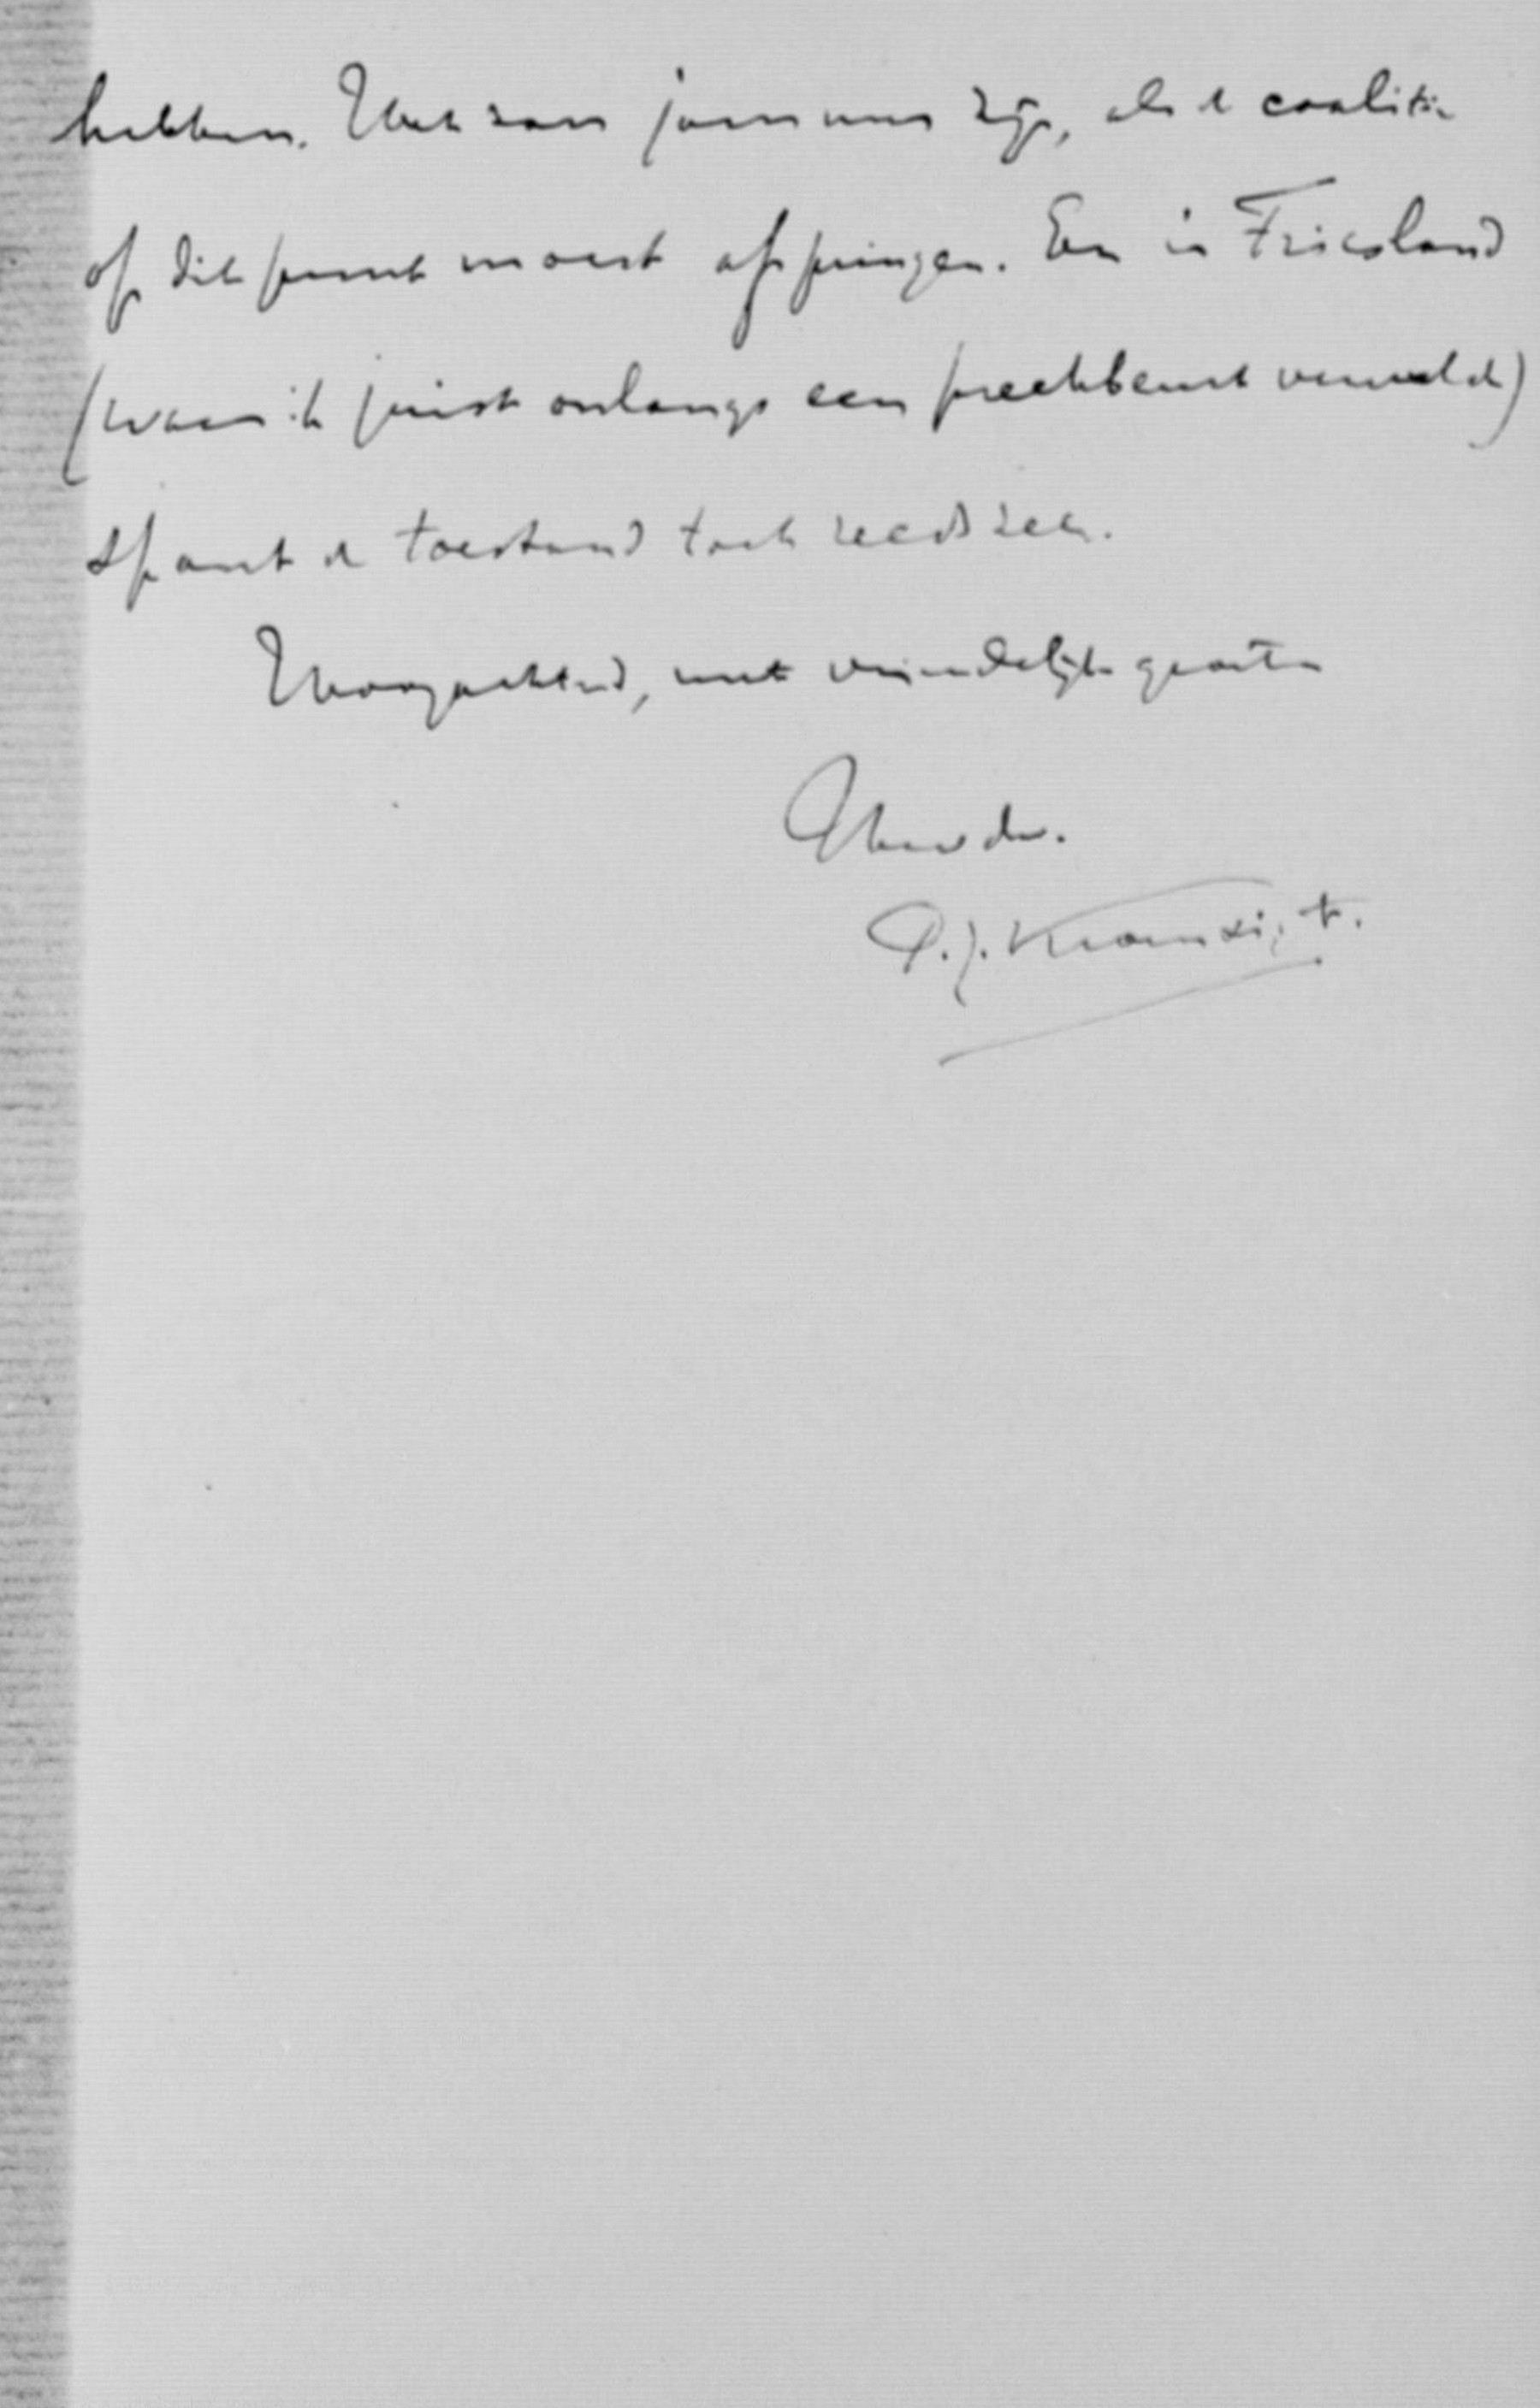 hebben. Het zou jammer zijn, als de coalitie
op dit punt moest afspringen. En in Friesland
(waar ik juist onlangs een preekbeurt vervulde)
spant de toestand toch reeds zeer.
Hoogachtend, met vriendelijke groeten
Uw dw.
P. J. Kromsigt.